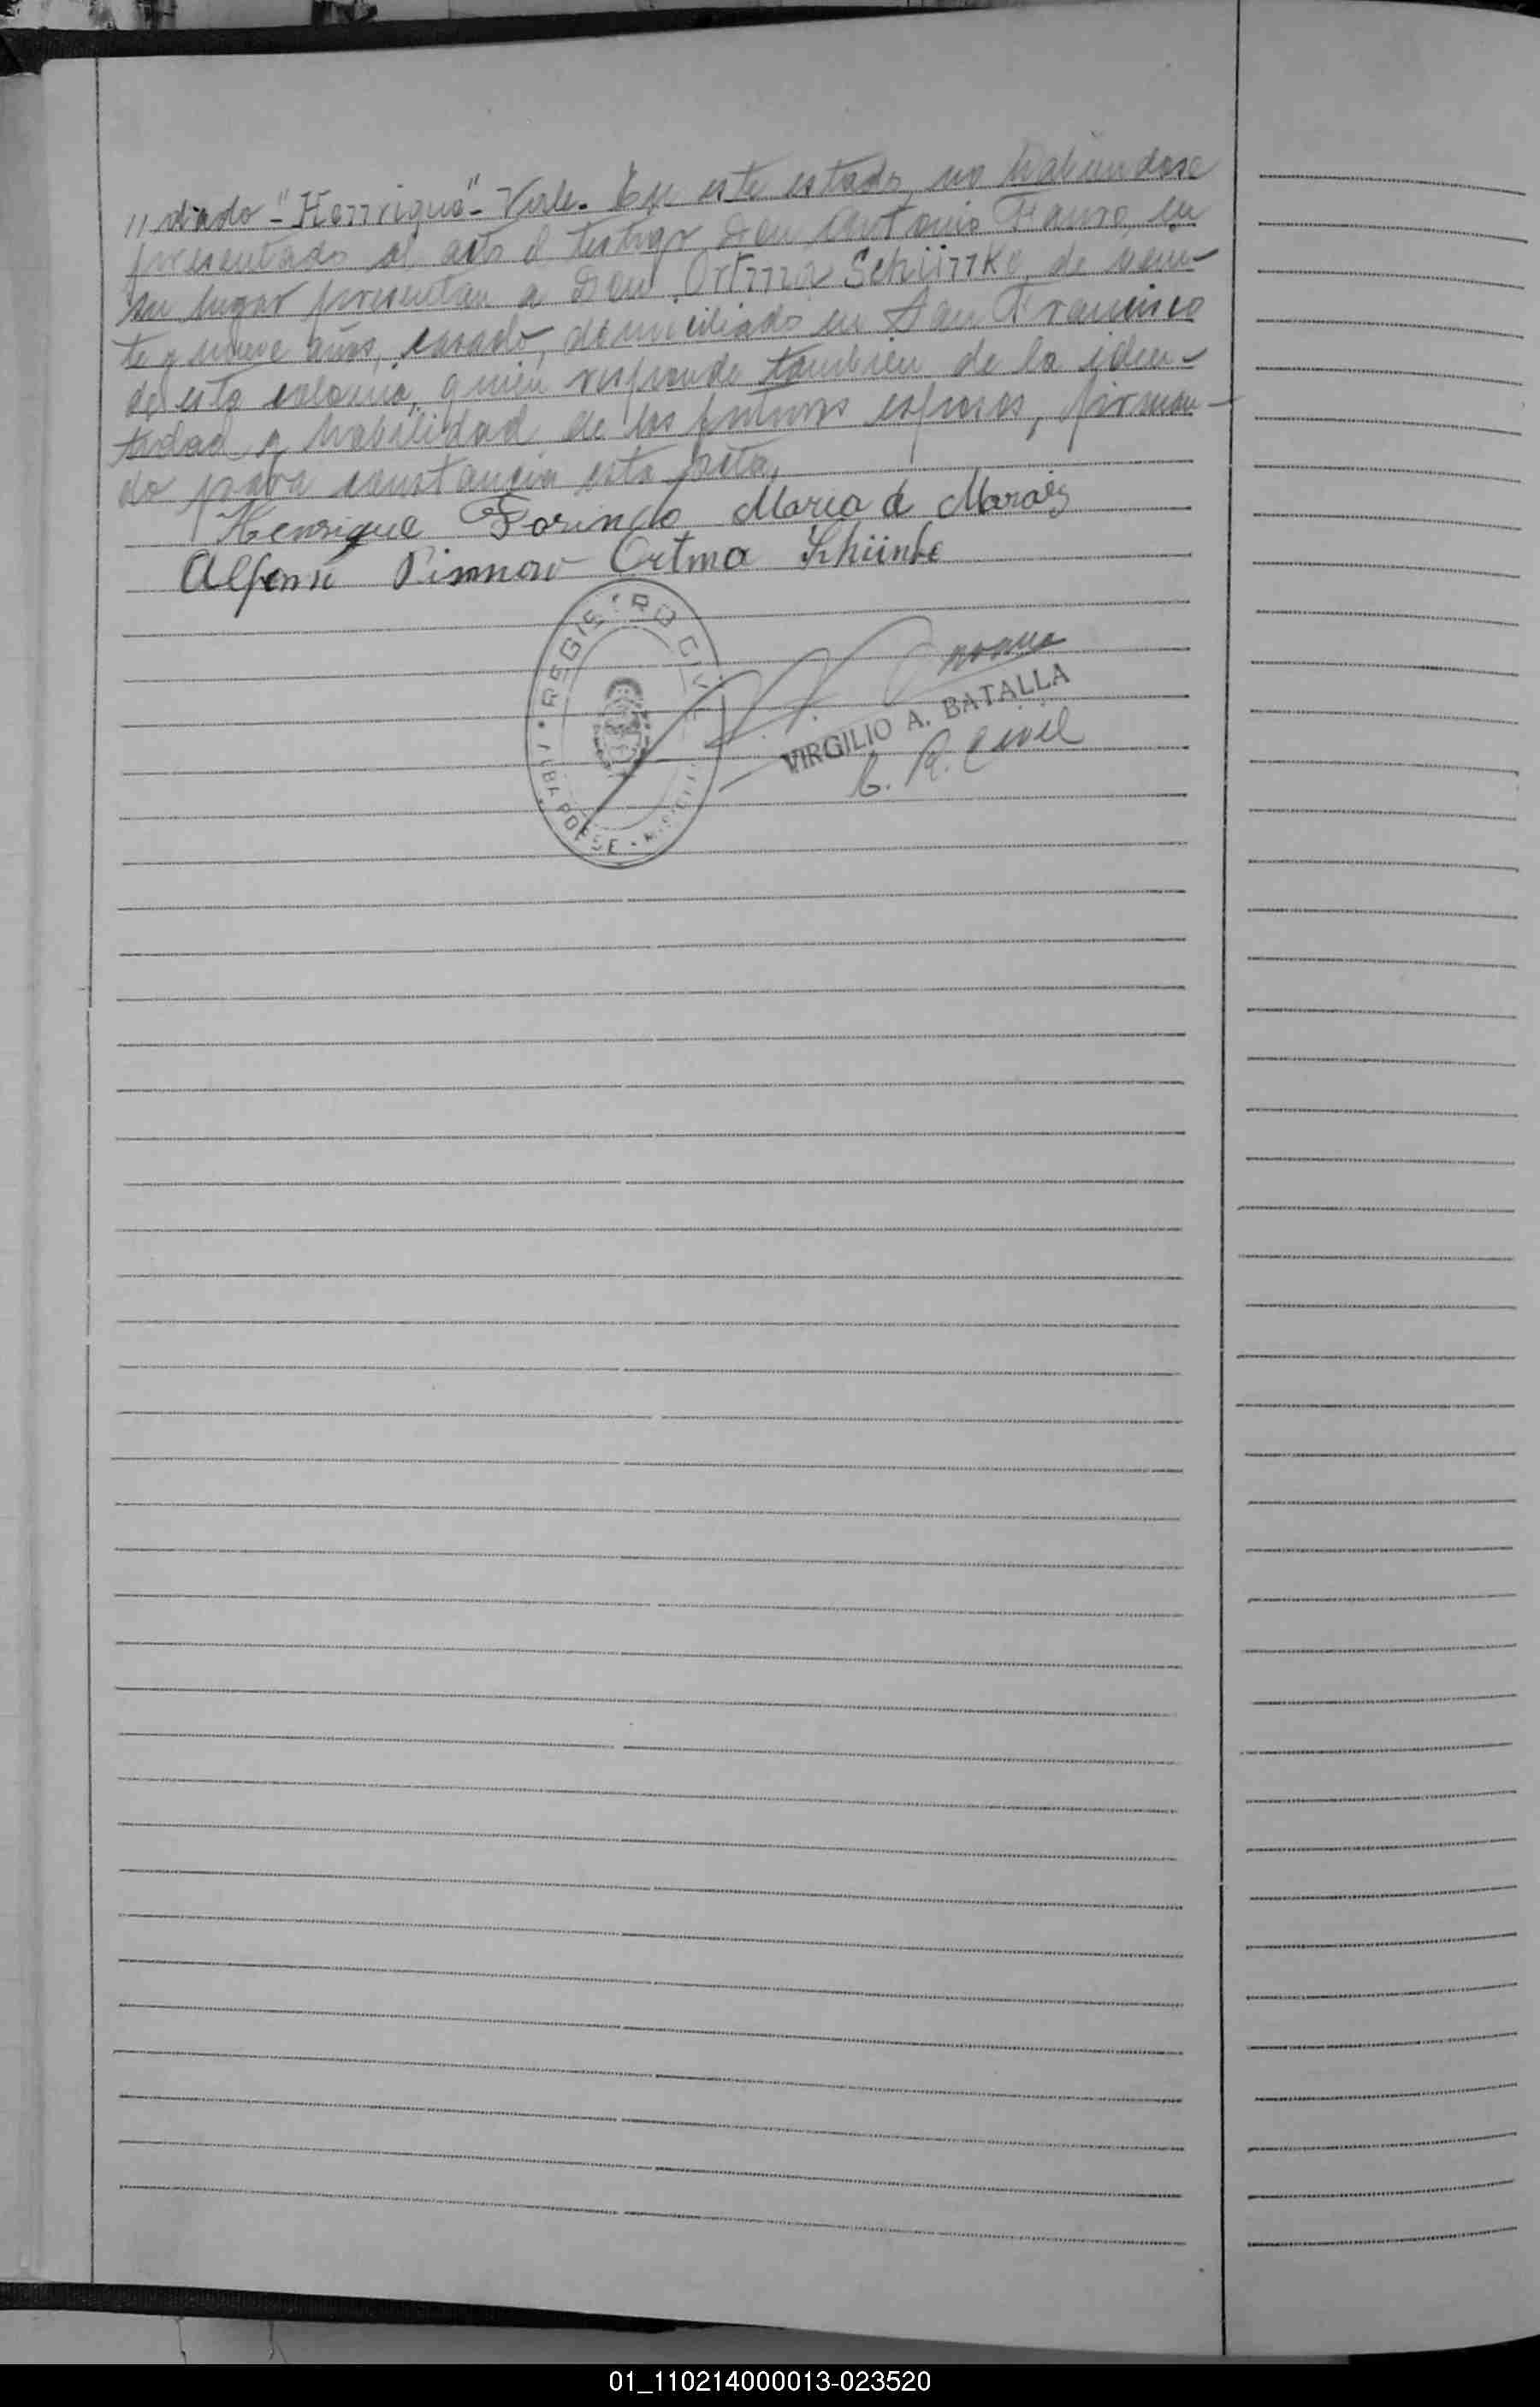 "diado -"Henrique"- Vale. En este estado, no habiendose
presentado al acto el testigo Don Antonio Fauro, en
su lugar presentan a Don Ortma Schünke, de vein-
te y nueve años, casado, domiciliado en San Francisco
de esta colonia, quien responde tambien de la iden-
tidad y habilidad de los futuros esposos, firman-
do para constancia esta acta,
Henrique Forindo Maria de Moraiz
Alfonsi Pimnow Ortma Schünke
REGISTRO CIVIL
ALBA POSSE
VIRGILIO A. BATALLA
E. R. Civil
01_110214000013-023520